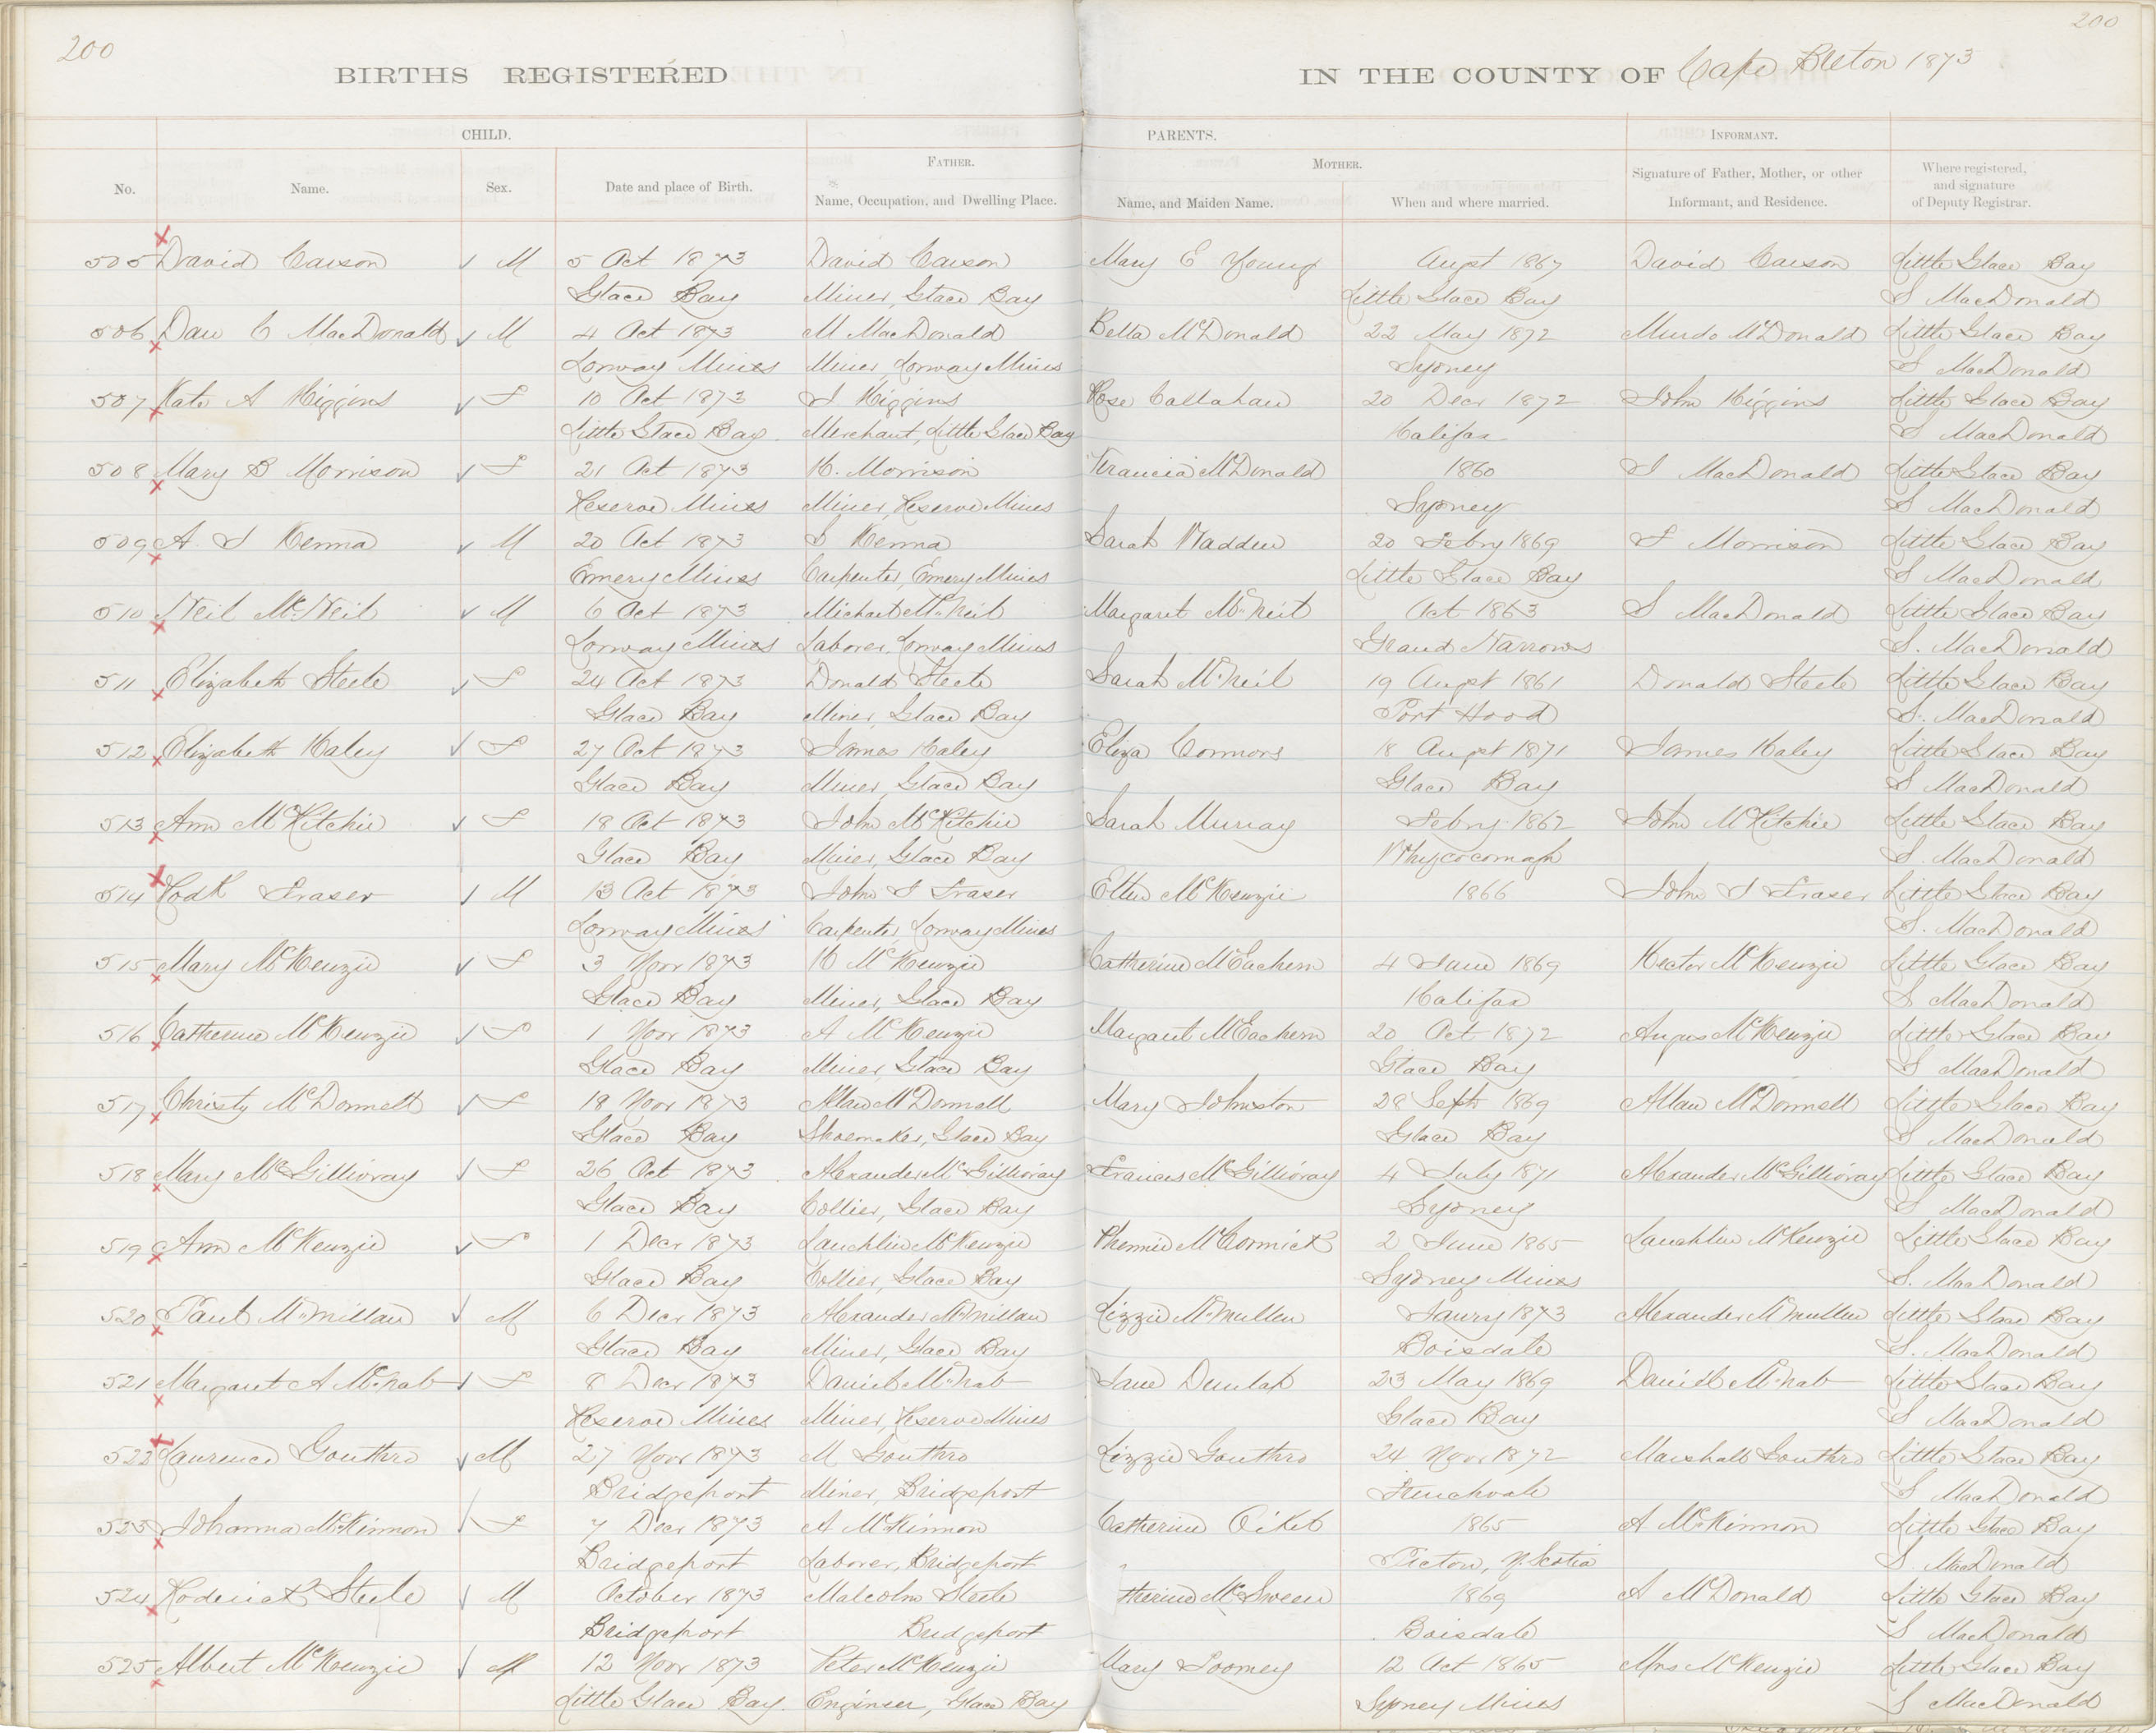 200
200
BIRTHS REGISTERED
IN THE COUNTY OF Cape Breton 1873
CHILD.
PARENTS.
INFORMANT.
FATHER.
MOTHER.
No.
Name.
Sex.
Date and place of Birth.
Name, Occupation, and Dwelling Place.
Name, and Maiden Name.
When and where married.
Signature of Father, Mother, or other
Informant, and Residence.
Where registered,
and signature
of Deputy Registrar.
505 David Carson M 5 Oct 1873 David Carson Mary E Young Augst 1867 David Carson Little Glace Bay
Glace Bay Miner, Glace Bay Little Glace Bay S MacDonald
506 Dan C MacDonald M 4 Oct 1873 M MacDonald Bella McDonald 22 May 1872 Murdo McDonald Little Glace Bay
Lorway Mines Miner, Lorway Mines Sydney S MacDonald
507 Kate A Higgins F 10 Oct 1873 J Higgins Rose Callahan 20 Decr 1872 John Higgins Little Glace Bay
Little Glace Bay Merchant, Little Glace Bay Halifax S MacDonald
508 Mary B Morrison F 21 Oct 1873 H. Morrison McDonald 1860 S MacDonald Little Glace Bay
Reserve Mines Miner, Reserve Mines Sydney S MacDonald
509 A. J Kenna M 20 Oct 1873 J Kenna Sarah Madden 20 Febry 1869 Morrison Little Glace Bay
Emery Mines Carpenter, Emery Mines Little Glace Bay S MacDonald
510 Neil McNeil M 6 Oct 1873 Michael McNeil Margaret McNeil Oct 1863 S MacDonald Little Glace Bay
Lorway Mines Laborer, Lorway Mines Grand Narrows S. MacDonald
511 Elizabeth Steele F 24 Oct 1873 Donald Steele Sarah McNeil 19 Augst 1861 Donald Steele Little Glace Bay
Glace Bay Miner, Glace Bay Port Hood S. MacDonald
512 Elizabeth Haley F 27 Oct 1873 James Haley Eliza Connors 18 Augst 1871 James Haley Little Glace Bay
Glace Bay Miner, Glace Bay Glace Bay S MacDonald
513 Ann McRitchie F 18 Oct 1873 John McRitchie Sarah Murray Febry 1862 John McRitchie Little Glace Bay
Glace Bay Miner, Glace Bay Whycocomagh S. MacDonald
514 Rodk Fraser M 13 Oct 1873 John J Fraser Ellen McKenzie 1866 John J Fraser Little Glace Bay
Lorway Mines Carpenter, Lorway Mines S. MacDonald
515 Mary McKenzie F 3 Novr 1873 H McKenzie Catherine McEachern 4 June 1869 Hector McKenzie Little Glace Bay
Glace Bay Miner, Glace Bay Halifax S MacDonald
516 Catherine McKenzie F 1 Novr 1873 A McKenzie Margaret McEachern 20 Oct 1872 Angus McKenzie Little Glace Bay
Glace Bay Miner, Glace Bay Glace Bay S MacDonald
517 Christy McDonnell F 18 Novr 1873 Allan McDonnell Mary Johnston 28 Septr 1869 Allan McDonnell Little Glace Bay
Glace Bay Shoemaker, Glace Bay Glace Bay S MacDonald
518 Mary McGillivray F 26 Oct 1873 Alexander McGillivray Frances McGillivray 4 July 1871 Alexander McGillivray Little Glace Bay
Glace Bay Collier, Glace Bay Sydney S MacDonald
519 Ann McKenzie F 1 Decr 1873 Lauchlin McKenzie Phemie McCormick 2 June 1865 Lauchlin McKenzie Little Glace Bay
Glace Bay Collier, Glace Bay Sydney Mines S. MacDonald
520 Paul McMillan M 6 Decr 1873 Alexander McMillan Lizzie McMullen Janry 1873 Alexander McMullen Little Glace Bay
Glace Bay Miner, Glace Bay Boisdale S. MacDonald
521 Margaret A McNab F 8 Decr 1873 Daniel McNab Jane Dunlap 23 May 1869 Daniel McNab Little Glace Bay
Reserve Mines Miner, Reserve Mines Glace Bay S MacDonald
522 Laurence Gouthro M 27 Novr 1873 M Gouthro Lizzie Gouthro 24 Novr 1872 Marshall Gouthro Little Glace Bay
Bridgeport Miner, Bridgeport Frenchvale S MacDonald
523 Johanna McKinnon F 7 Decr 1873 A McKinnon Catherine 1865 A McKinnon Little Glace Bay
Bridgeport Laborer, Bridgeport Pictou, N. Scotia S. MacDonald
524 Roderick Steele M October 1873 Malcolm Steele therine McSween 1869 A McDonald Little Glace Bay
Bridgeport Bridgeport Boisdale S MacDonald
525 Albert McKenzie M 12 Novr 1873 Peter McKenzie Mary Toomey 12 Oct 1865 Mrs McKenzie Little Glace Bay
Little Glace Bay Engineer, Glace Bay Sydney Mines S MacDonald